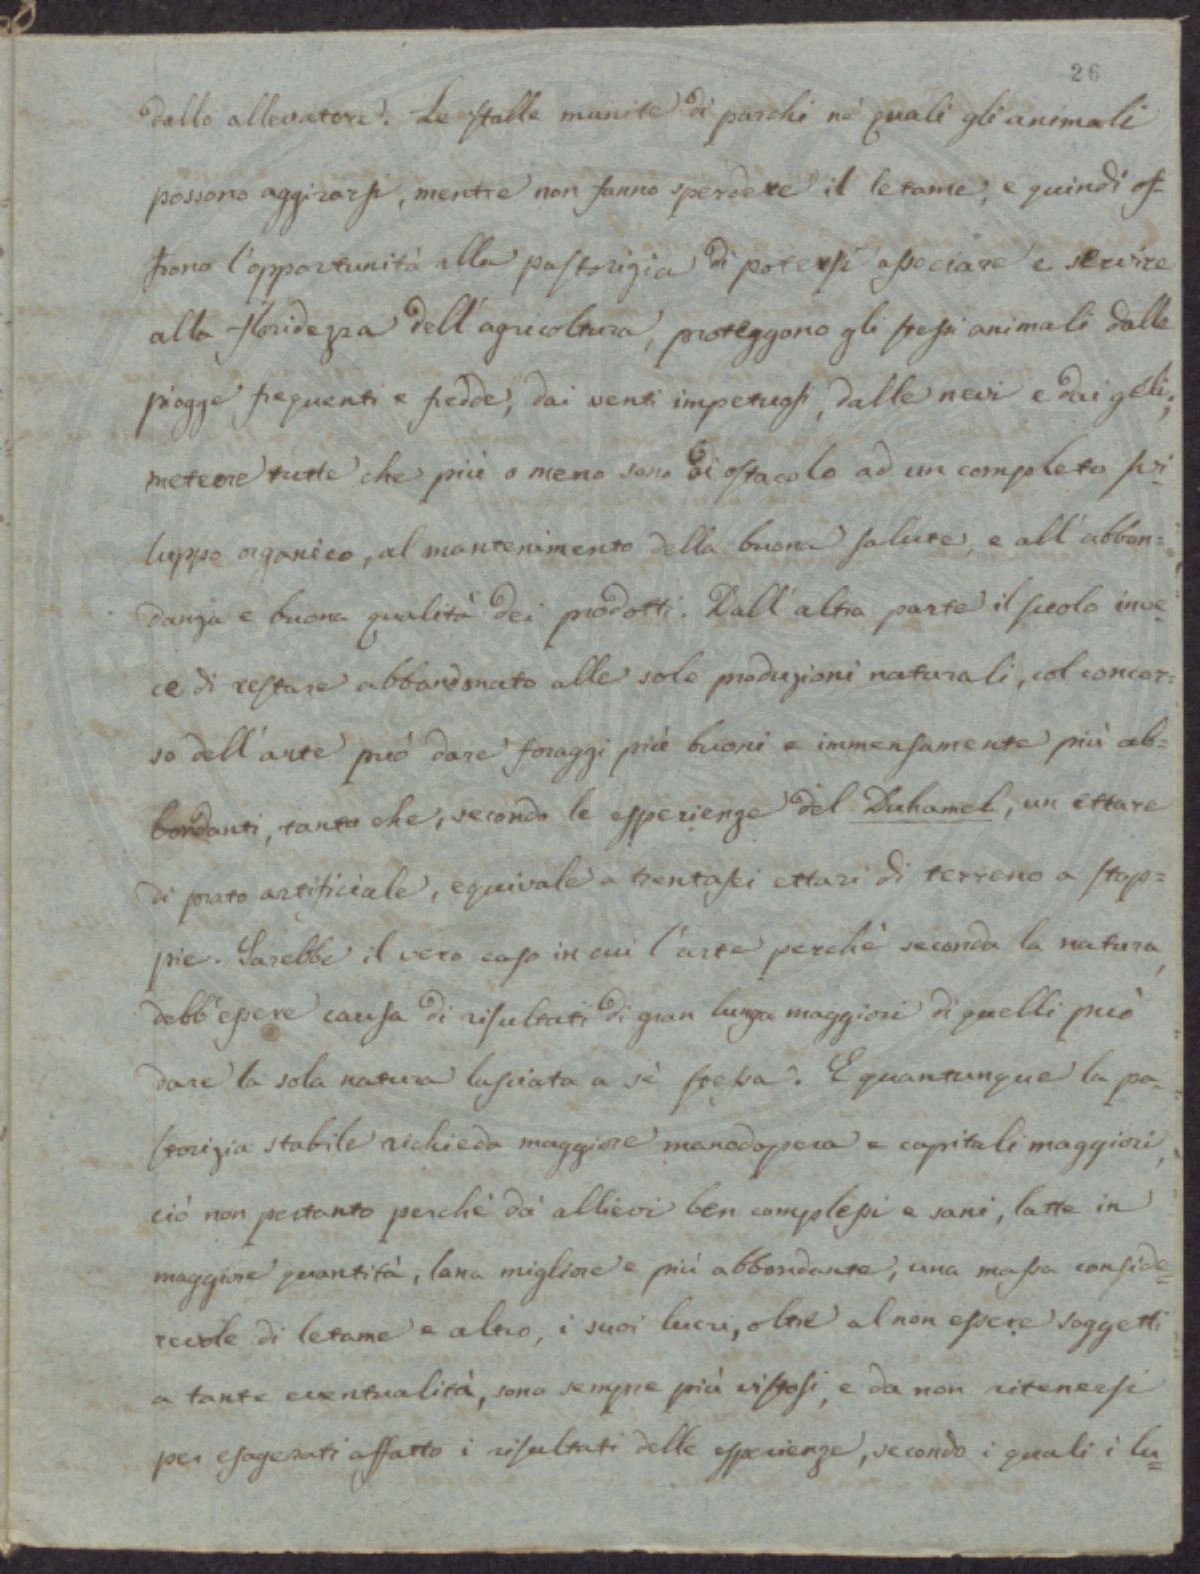 26
dallo allevatore. Le stalle munite di parchi ne' quali gli animali
possono aggirarsi, mentre non fanno sperdere il letame, e quindi of-
frono l'opportunità alla pastorizia di potersi associare e servire
alla floridezza dell'agricoltura, proteggono gli stessi animali dalle
piogge frequenti e fredde, dai venti impetuosi, dalle nevi e dai geli;
meteore tutte che più o meno sono di ostacolo ad un completo svi=
luppo organico, al mantenimento della buona salute, e all'abbon=
danza e buona qualità dei prodotti. Dall'altra parte il suolo inve=
ce di restare abbandonato alle sole produzioni naturali, col concor=
so dell'arte può dare foraggi più buoni e immensamente più ab=
bondanti, tanto che, secondo le esperienze del Duhamel, un ettare
di prato artificiale, equivale a trentasei ettari di terreno a stop=
pie. Sarebbe il vero caso in cui l'arte perchè seconda la natura,
debb'essere causa di risultati di gran lunga maggiori di quelli può
dare la sola natura lasciata a sè stessa. E quantunque la pa=
storizia stabile richieda maggiore manodopera e capitali maggiori,
ciò non pertanto perchè dà allievi ben complessi e sani, latte in
maggiore quantità, lana migliore e più abbondante, una massa conside=
revole di letame e altro, i suoi lucri, oltre al non essere soggetti
a tante eventualità, sono sempre più vistosi, e da non ritenersi
per esagerati affatto i risultati delle esperienze, secondo i quali i lu=